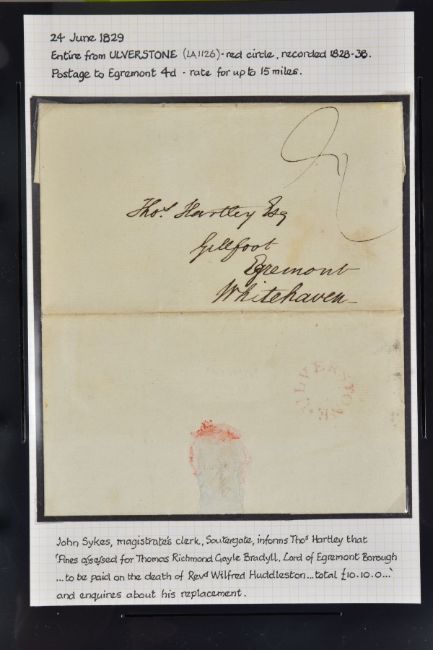 24 June 1829
Entire from ULVERSTONE (LA1126) - red circle, recorded 1828-38.
Postage to Egremont 4d - rate for up to 15 miles.
Thos. Hartley Esq
Gillfoot
Egremont
Whitehaven
ULVERSTONE
John Sykes, magistrate's clerk, Soutergate, informs Thos Hartley that
'Fines assessed for Thomas Richmond Gayle Bradyll, Lord of Egremont Borough
...to be paid on the death of Revd Wilfred Huddleston...total £10.10.0...'
and enquires about his replacement.